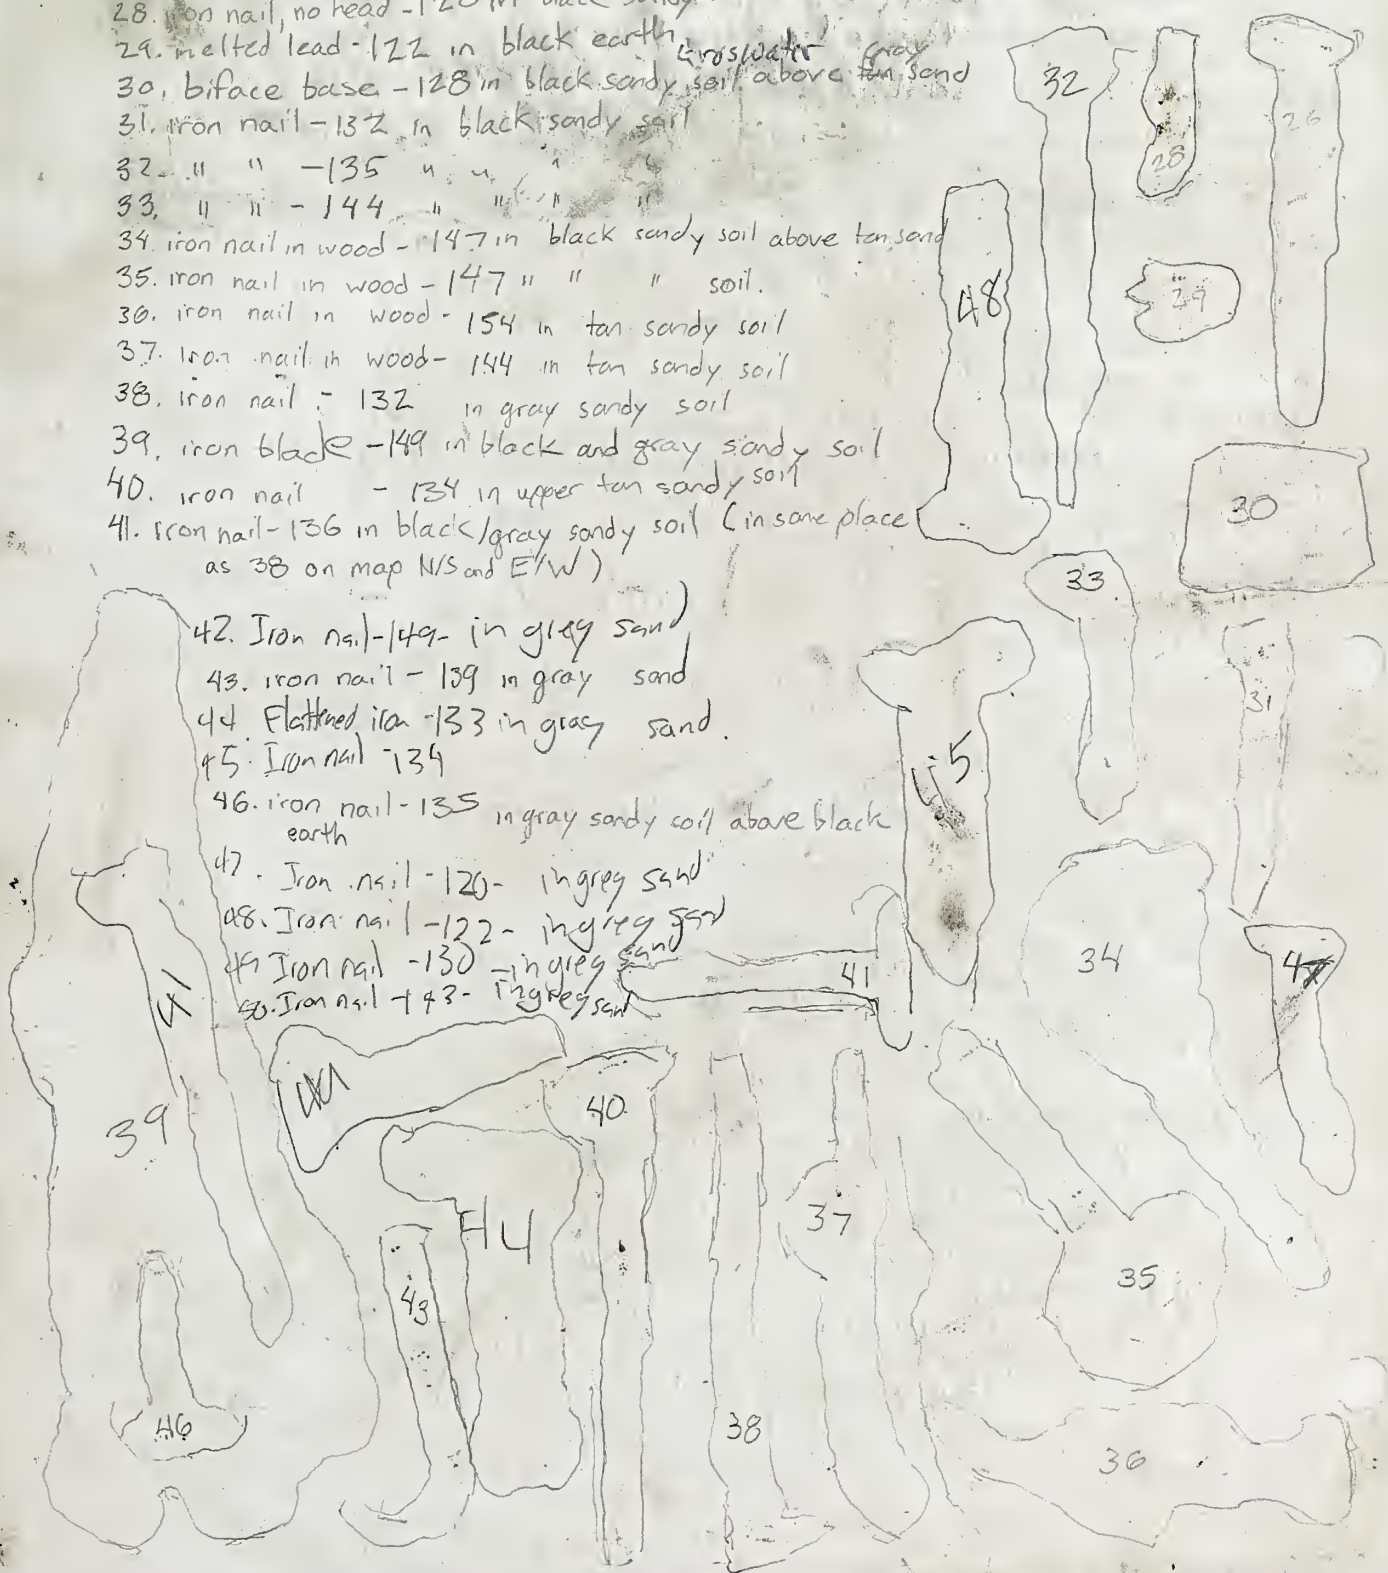 28. iron nail, no head - 120 in black sandy
29. melted lead - 122 in black earth
Groswater gray
30. biface base - 128 in black sandy soil above tan sand
31. iron nail - 132 in black sandy soil
32. " " - 135 " " " "
33. " " - 144 " " " "
34. iron nail in wood - 147 in black sandy soil above tan sand
35. iron nail in wood - 147 " " " soil.
36. iron nail in wood - 154 in tan sandy soil
37. Iron nail in wood - 144 in tan sandy soil
38. iron nail - 132 in gray sandy soil
39. iron blade - 149 in black and gray sandy soil
40. iron nail - 134 in upper tan sandy soil
41. Iron nail - 136 in black/gray sandy soil (in same place
as 38 on map N/S and E/W)
42. Iron nail - 149 - in grey sand
43. iron nail - 139 in gray sand
44 Flattned iron - 133 in gray sand.
45. Iron nail - 134
46. iron nail - 135 in gray sandy soil above black
earth
47. Iron nail - 120 - in grey sand
48. Iron nail - 122 - in grey sand
49 Iron nail - 130 - in grey sand
50. Iron nail - 143 - in grey sand
32
28
26
48
29
30
33
31
45
34
41
47
41
39
40
44
43
37
35
46
38
36